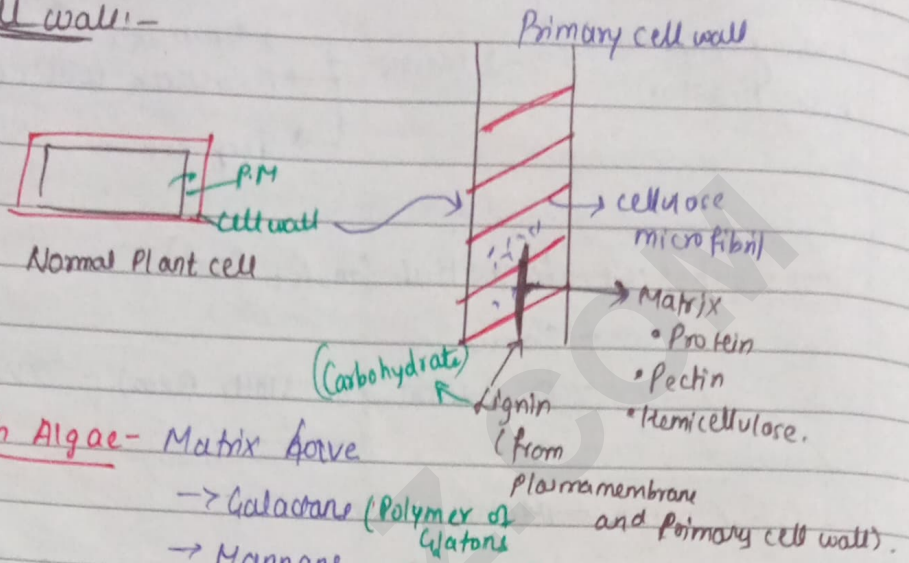 ll wall:-
Primary cell wall
P.M
cell wall
Normal Plant cell
cellulose
microfibril
Matrix
• Protein
• Pectin
• Hemicellulose.
(Carbohydrate)
Lignin
(from
Plasmamembrane
and Primary cell wall).
n Algae- Matrix
→ Galactans (Polymer of
→ Mannans
Z.COM